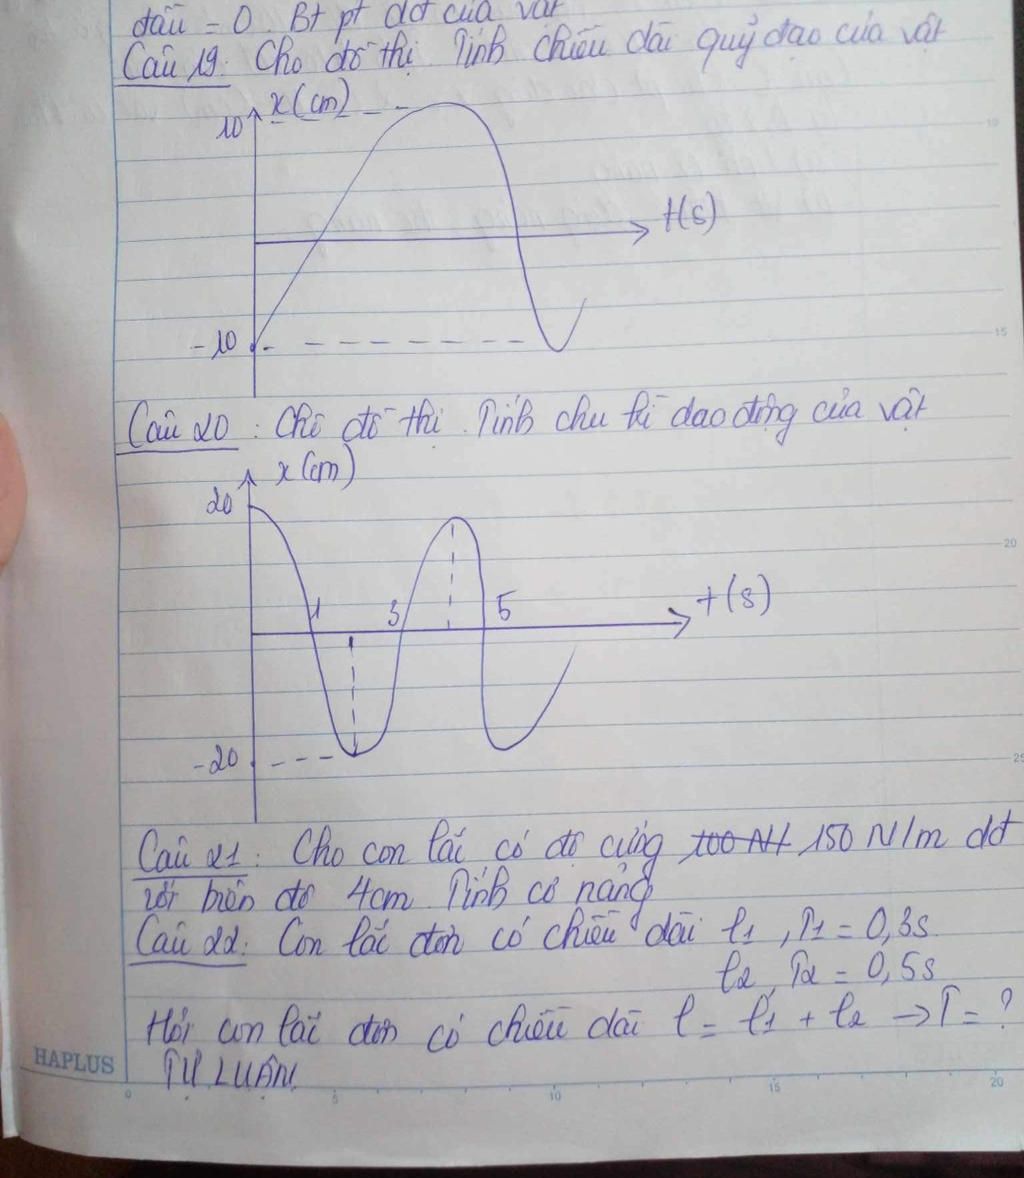 đầu = 0. Bt pt dđ của vật
Câu 19: Cho đồ thị Tính chiều dài quỹ đạo của vật
x(cm)
10
t(s)
-10
Câu 20: Cho đồ thị. Tính chu kì dao động của vật
x(cm)
20
1 3 5 t(s)
-20
Câu 21: Cho con lắc có độ cứng 100 N/ 150 N/m dđ
với biên độ 4cm. Tính cơ năng
Câu 22: Con lắc đơn có chiều dài l1, T1 = 0,3s
l2, T2 = 0,5s
Hỏi con lắc đơn có chiều dài l = l1 + l2 → T = ?
TỰ LUẬN
HAPLUS
0 5 10 15 20
10
15
20
25